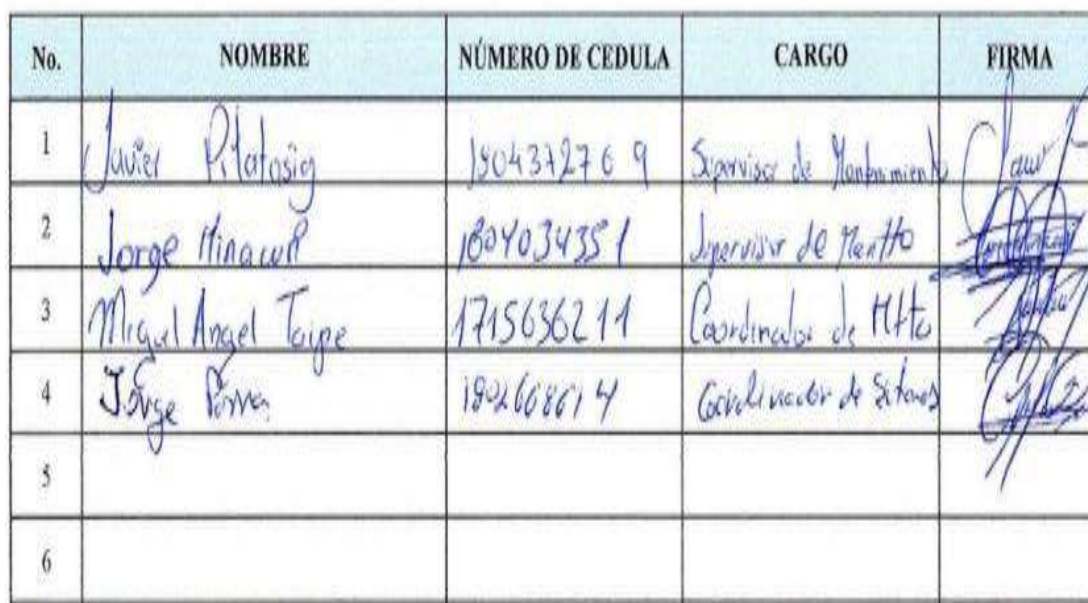 No. NOMBRE NÚMERO DE CEDULA CARGO FIRMA
1 Javier Pilatosig 1804372769 Supervisor de Mantenimiento
2 Jorge 1804034351 Supervisor de Mantto
3 Miguel Angel Taipe 1715636211 Coordinador de Mtto
4 Jorge 1802668614 Coordinador de
5
6